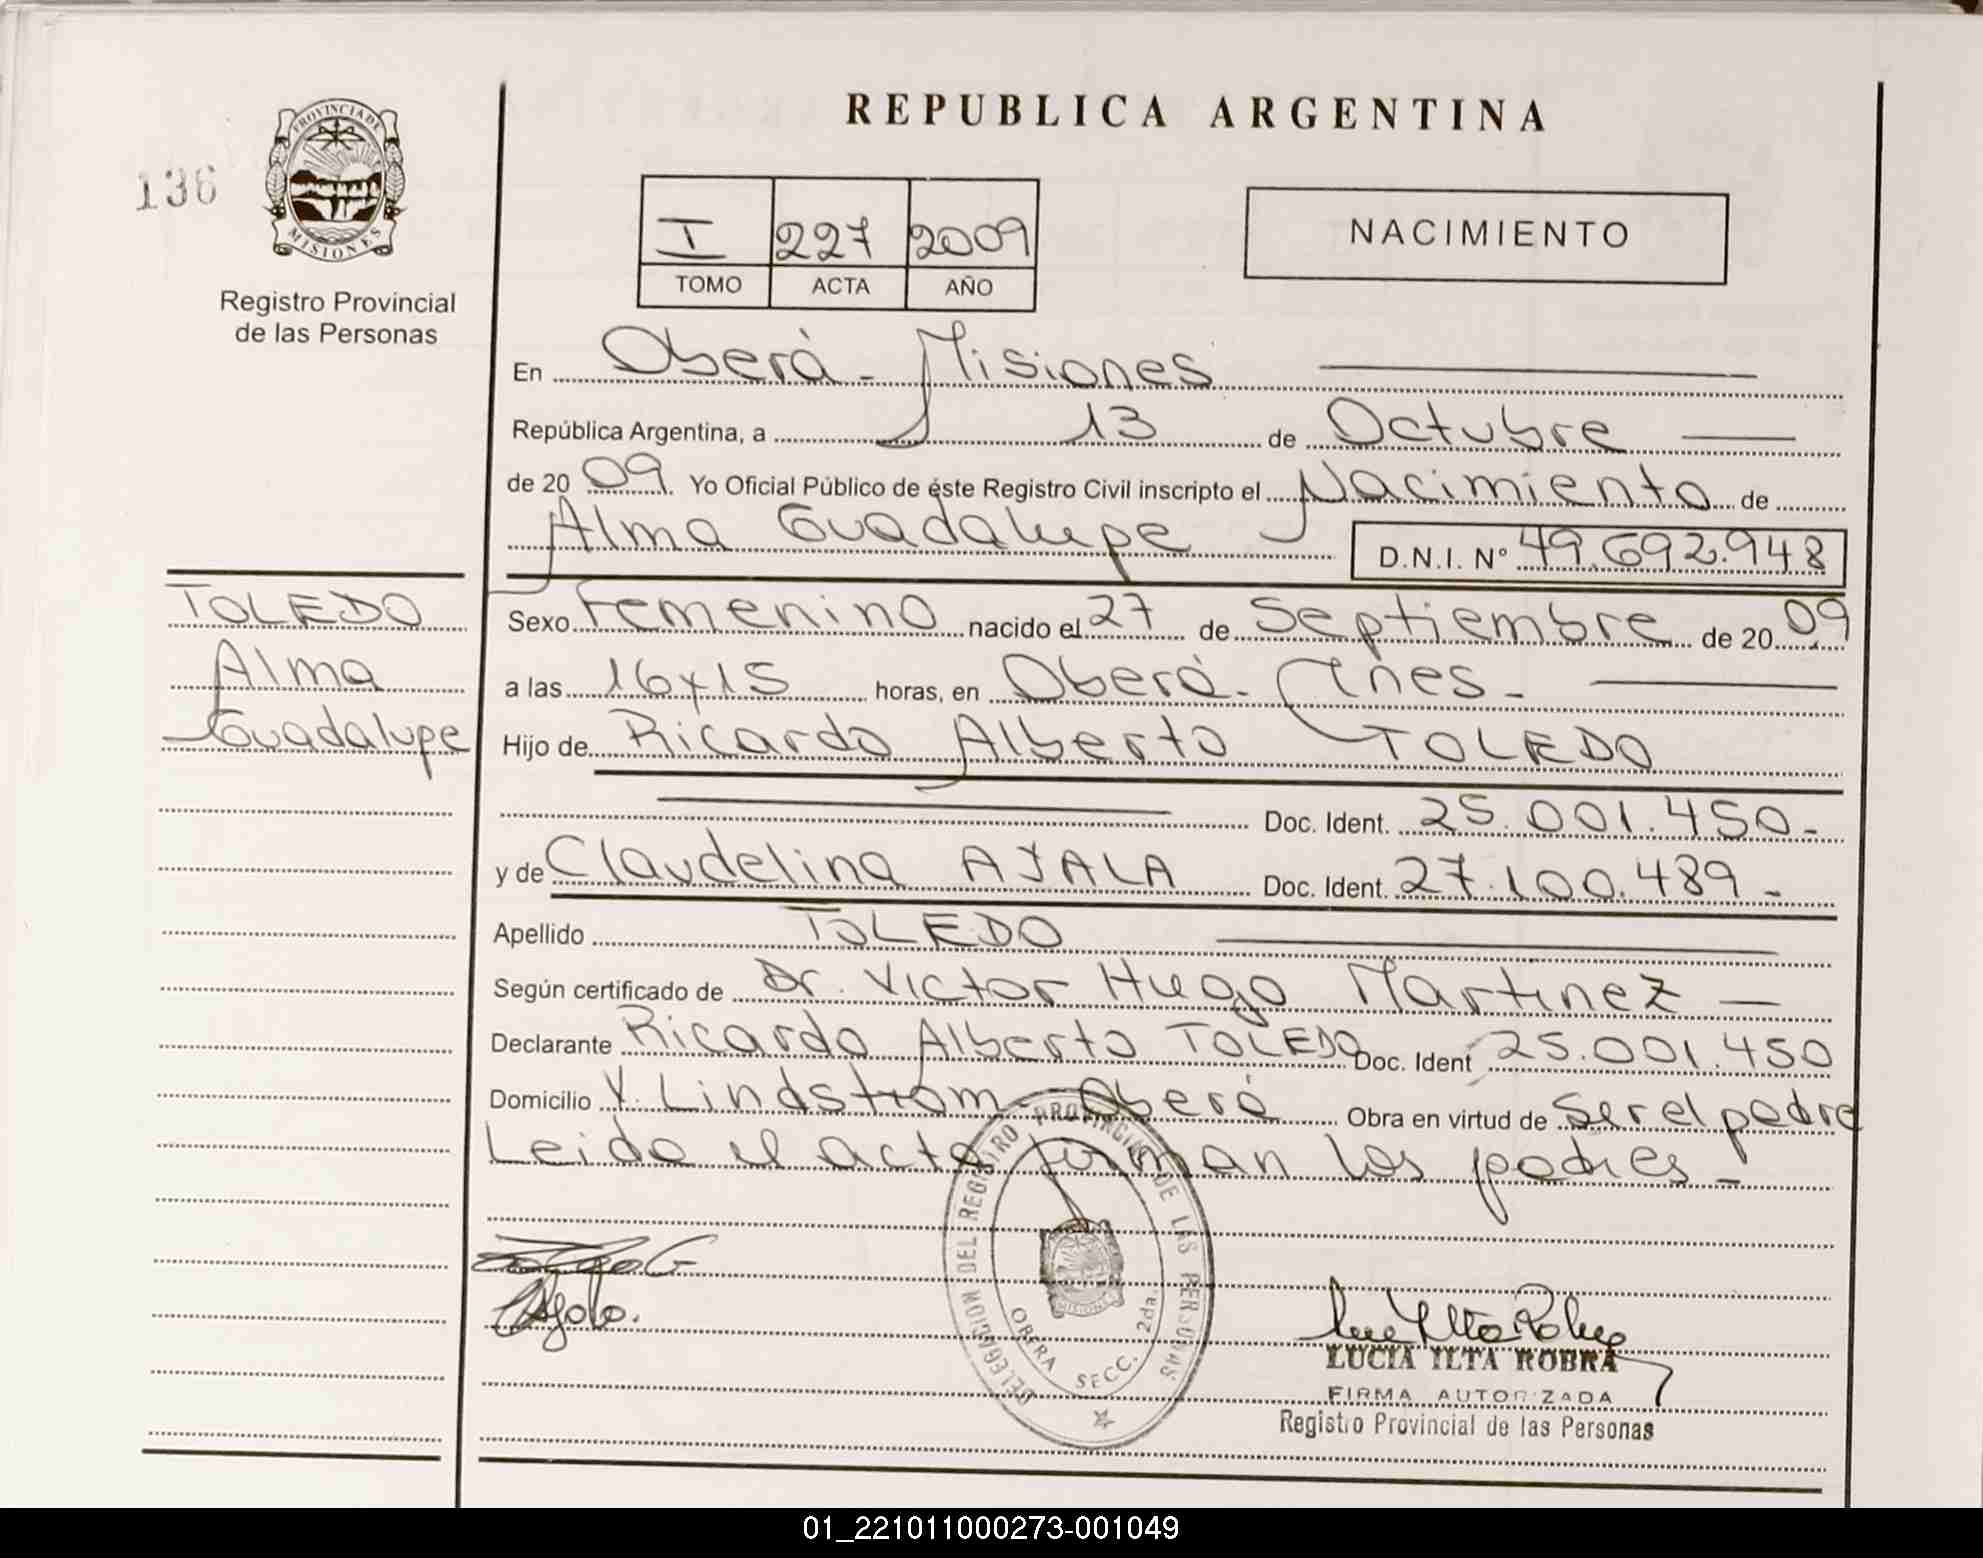 REPUBLICA ARGENTINA
136
PROVINCIA DE
MISIONES
Registro Provincial
de las Personas
I 227 2009
TOMO ACTA AÑO
NACIMIENTO
En Oberá - Misiones
República Argentina, a 13 de Octubre
de 2009 Yo Oficial Público de éste Registro Civil inscripto el Nacimiento de
Alma Guadalupe D.N.I. Nº 49.692.948
TOLEDO
Alma
Guadalupe
Sexo Femenino nacido el 27 de Septiembre de 2009
a las 16y15 horas, en Oberá - Mnes -
Hijo de Ricardo Alberto TOLEDO
Doc. Ident. 25.001.450-
y de Claudelina AYALA Doc. Ident. 27.100.489-
Apellido TOLEDO
Según certificado de Dr. Victor Hugo Martinez
Declarante Ricardo Alberto TOLEDO Doc. Ident 25.001.450
Domicilio Y. Lindstrom - Oberá Obra en virtud de Ser el padre
Leida el acta firman los padres -
DELEGACION DEL REGISTRO PROVINCIAL DE LAS PERSONAS
OBERA SECC. 2da.
MISIONES
LUCIA ILTA ROBRA
FIRMA AUTORIZADA
Registro Provincial de las Personas
01_221011000273-001049